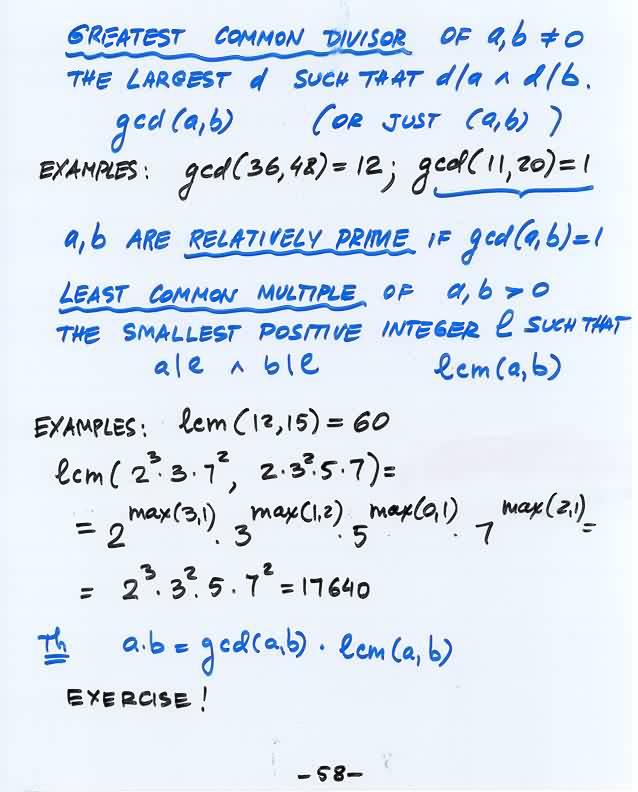 GREATEST COMMON DIVISOR OF a,b ≠ 0
THE LARGEST d SUCH THAT d/a ∧ d/b.
gcd(a,b) (OR JUST (a,b))
EXAMPLES: gcd(36,48)=12; gcd(11,20)=1
a,b ARE RELATIVELY PRIME IF gcd(a,b)=1
LEAST COMMON MULTIPLE OF a,b > 0
THE SMALLEST POSITIVE INTEGER ℓ SUCH THAT
a|ℓ ∧ b|ℓ lcm(a,b)
EXAMPLES: lcm(12,15) = 60
lcm(2³·3·7², 2·3²·5·7)=
= 2^max(3,1) · 3^max(1,2) · 5^max(0,1) · 7^max(2,1) =
= 2³·3²·5·7² = 17640
Th a·b = gcd(a,b) · lcm(a,b)
EXERCISE!
-58-